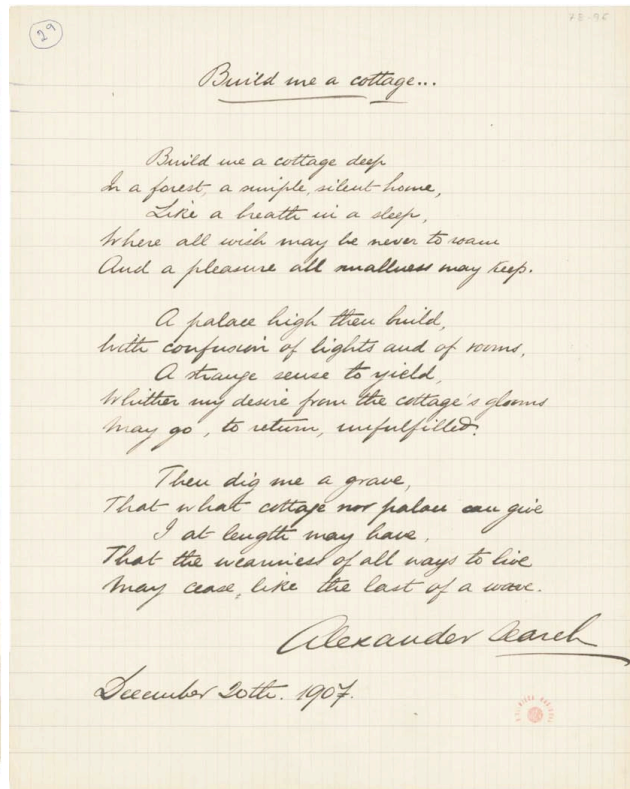 29
78-95
Build me a cottage...
Build me a cottage deep
In a forest, a simple, silent home,
Like a breath in a sleep,
Where all wish may be never to roam
And a pleasure all smallness may keep.
A palace high then build,
With confusion of lights and of rooms,
A strange sense to yield,
Whither my desire from the cottage's glooms
May go, to return, unfulfilled.
Then dig me a grave,
That what cottage nor palace can give
I at length may have,
That the weariness of all ways to live
May cease, like the last of a wave.
Alexander Search
December 20th. 1907.